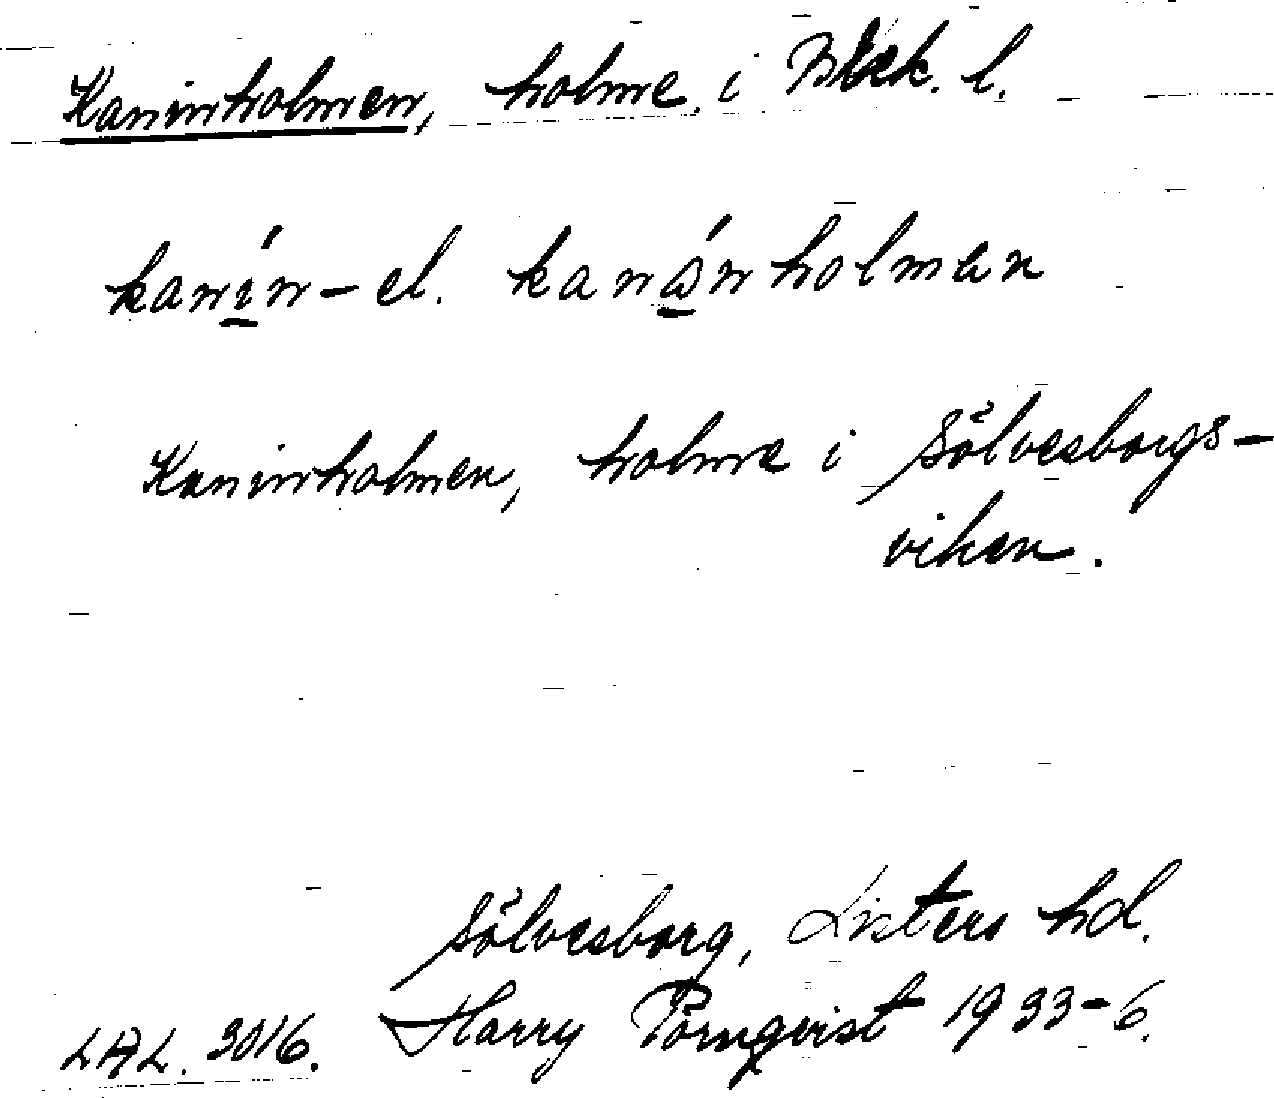 Kaninholmen, holme i Blek. l.
kanín- el. kanánholmen
Kaninholmen, holme i Sölvesborgs-
viken.
Sölvesborg, Listers hd.
LAL. 3016. Harry Törnqvist 1933-6.